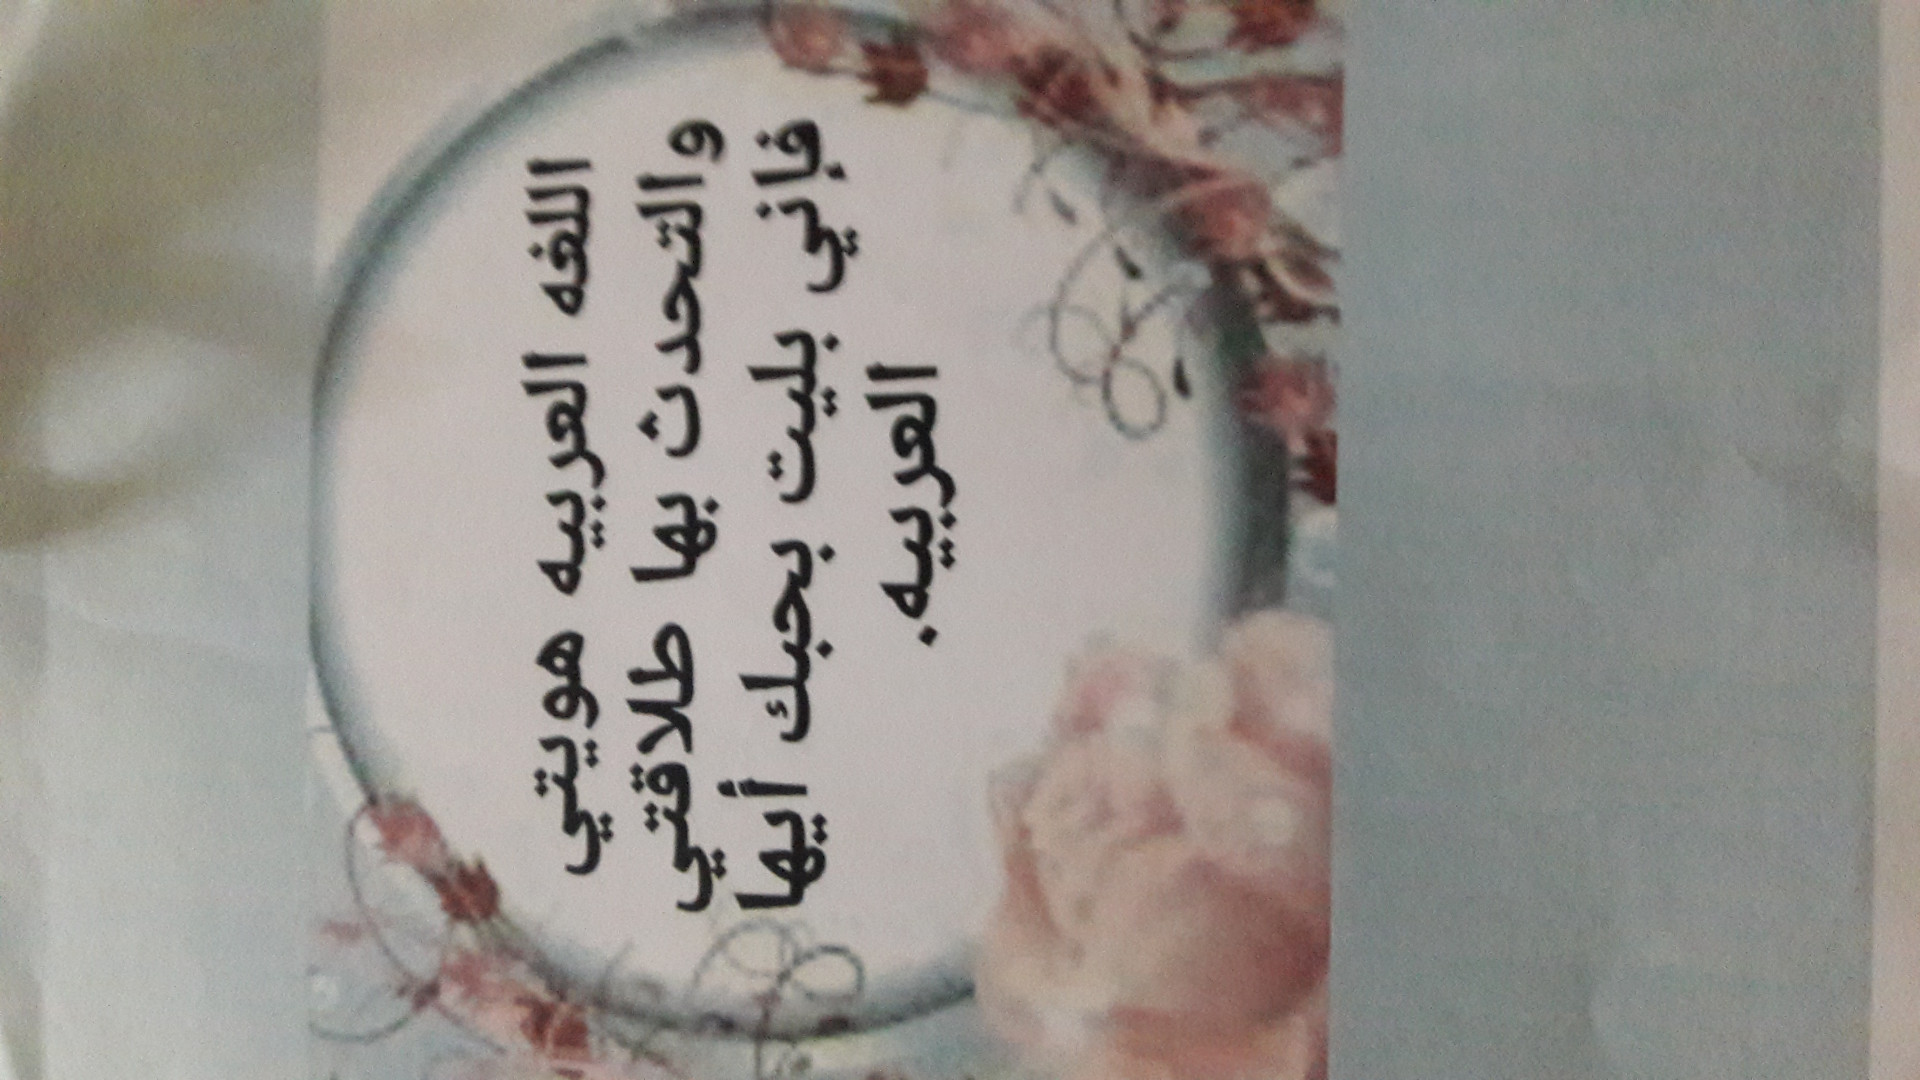 اللغه العربيه هويتي
والتحدث بها طلاقتي
فإني بليت بحبك أيها
العربيه.